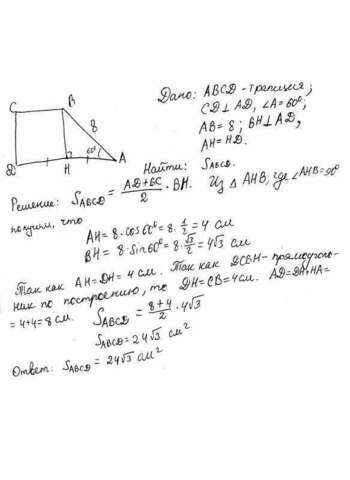 Дано: ABCD - трапеция;
CD⊥AD, ∠A=60°;
AB=8; BH⊥AD,
AH=HD.
C
B
8
60°
D
H
A
Найти: S_ABCD.
Решение: S_ABCD = (AD+BC)/2 · BH. Из △ AHB, где ∠AHB=90°
получим, что
AH = 8·cos60° = 8·1/2 = 4 см
BH = 8·sin60° = 8·√3/2 = 4√3 см
Так как AH=DH=4 см. Так как DCBH - прямоуголь-
ник по построению, то DH=CB=4см. AD=DH+HA=
=4+4=8см. S_ABCD = (8+4)/2 · 4√3
S_ABCD = 24√3 см²
Ответ: S_ABCD = 24√3 см²